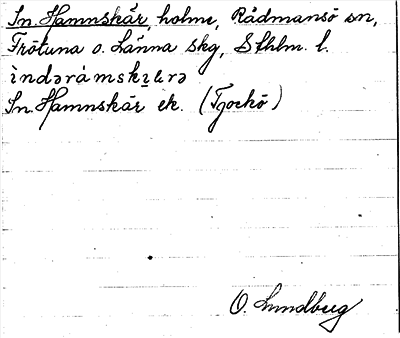 In. Hamnskär, holme, Rådmansö sn,
Frötuna o. Länna skg, Sthlm. l.
ìndərámskæ̱rə
In. Hamnskär ek. (Tjockö)
O. Lundberg